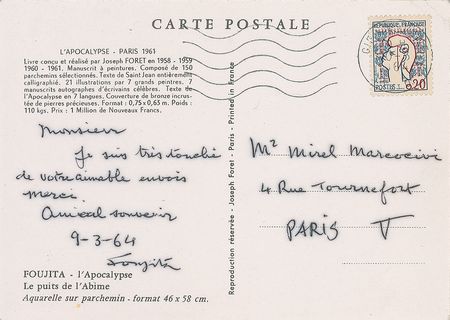 CARTE POSTALE
L'APOCALYPSE - PARIS 1961
Livre conçu et réalisé par Joseph FORET en 1958 - 1959
1960 - 1961. Manuscrit à peintures. Composé de 150
parchemins sélectionnés. Texte de Saint Jean entièrement
calligraphié, 21 illustrations par 7 grands peintres. 7
manuscrits autographes d'écrivains célèbres. Texte de
l'Apocalypse en 7 langues. Couverture de bronze incrus-
tée de pierres précieuses. Format : 0,75 x 0,65 m. Poids :
110 kgs. Prix : 1 Million de Nouveaux Francs.
Monsieur
Je suis très touché
de votre aimable envois
merci
Amical souvenir
9-3-64
Foujita
FOUJITA - l'Apocalypse
Le puits de l'Abime
Aquarelle sur parchemin - format 46 x 58 cm.
Reproduction réservée - Joseph Foret - Paris - Printed in France
REPUBLIQUE FRANÇAISE
POSTES
0,20
Mr Mirel Marcovivi
4 Rue Tournefort
PARIS V